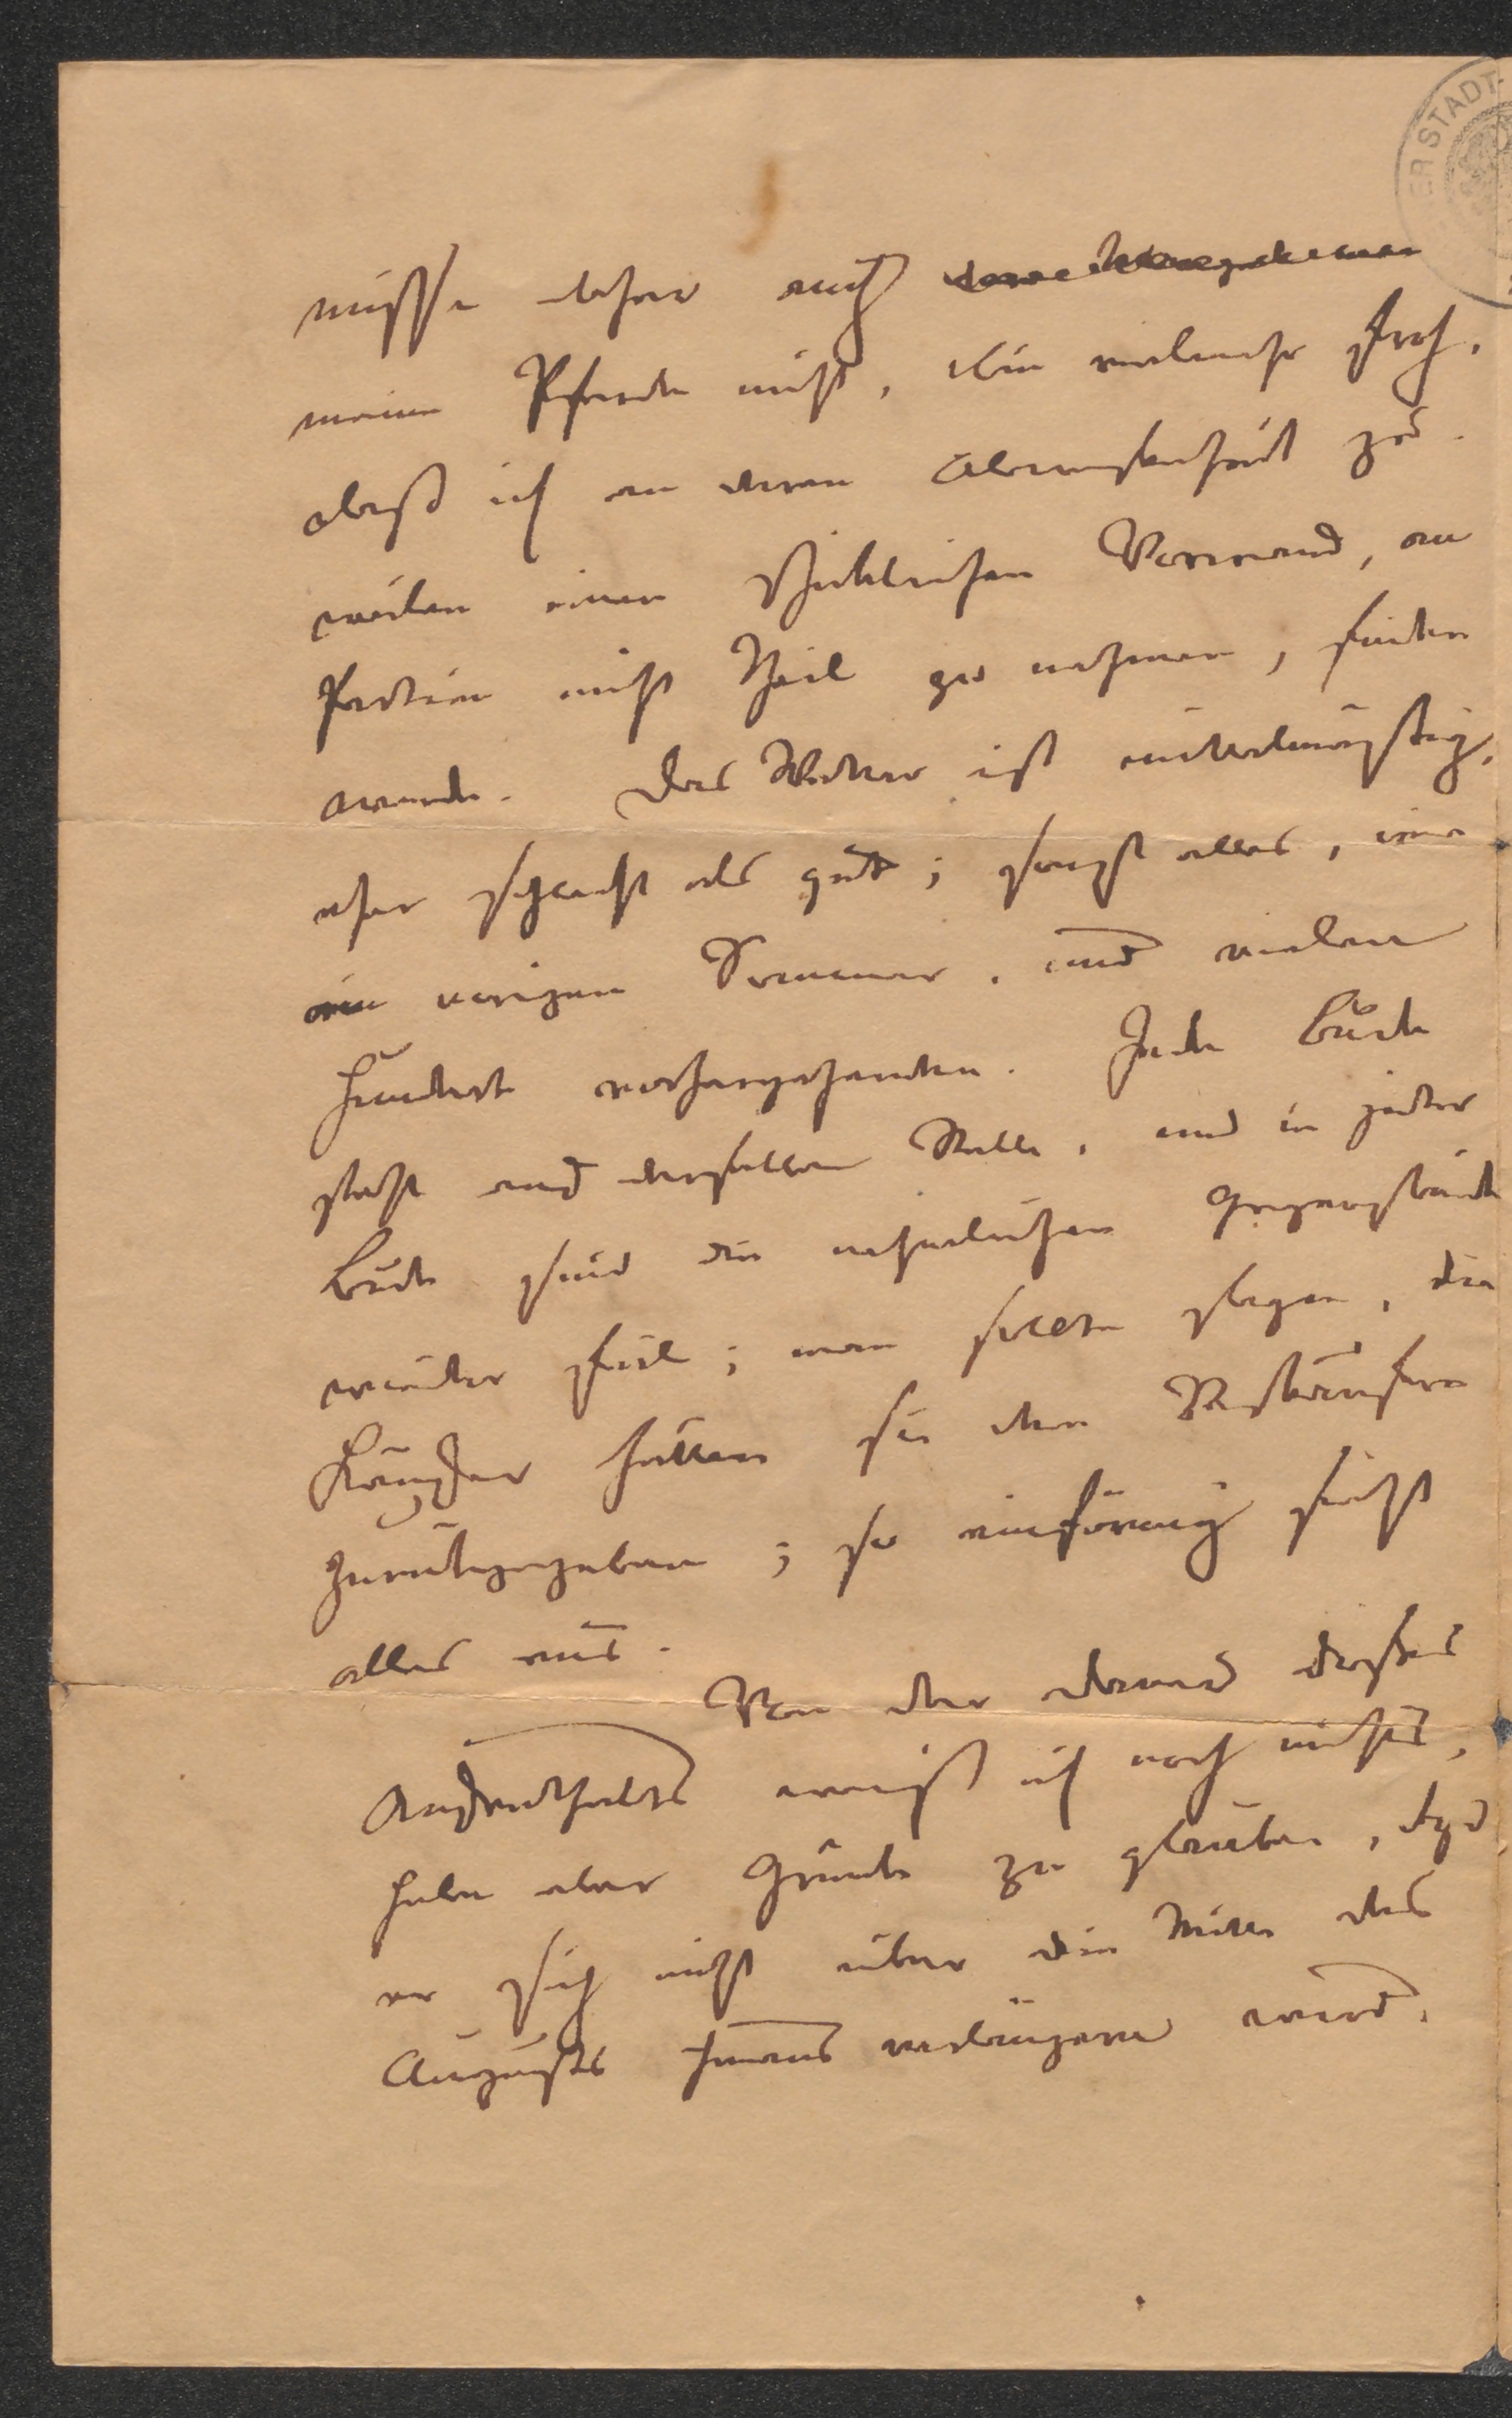 ER STADT
misse daher auch
meine Pferde nicht, bin vielmehr froh,
daß ich an deren Abwesenheit zu-
weilen einen schicklichen Vorwand, an
Partien nicht Theil zu nehmen, finden
werde. Das Wetter ist mittelmäßig,
eher schlecht als gut; sonst alles, wie
im vorigen Sommer, und vielen
Hunderten vorhergehenden. Jede Bude
steht auf derselben Stelle, und in jeder
Bude sind die nehmlichen Gegenstände
wieder feil; man sollte sagen, die
Käufer hätten sie den Verkäufern
zurückgegeben; so einförmig sieht
alles aus.
Von der Dauer dieses
Aufenthalts weiß ich noch nichts,
habe aber Gründe zu glauben, daß
er sich nicht über die Mitte des
Augusts hinaus verlängern wird.